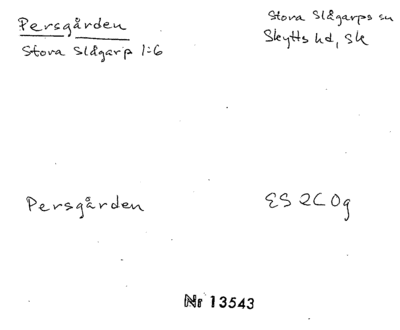 Persgården
Stora Slågarp 1:6
Stora Slågarps sn
Skytts hd, Sk
Persgården
ES 2C0g
Nr 13543